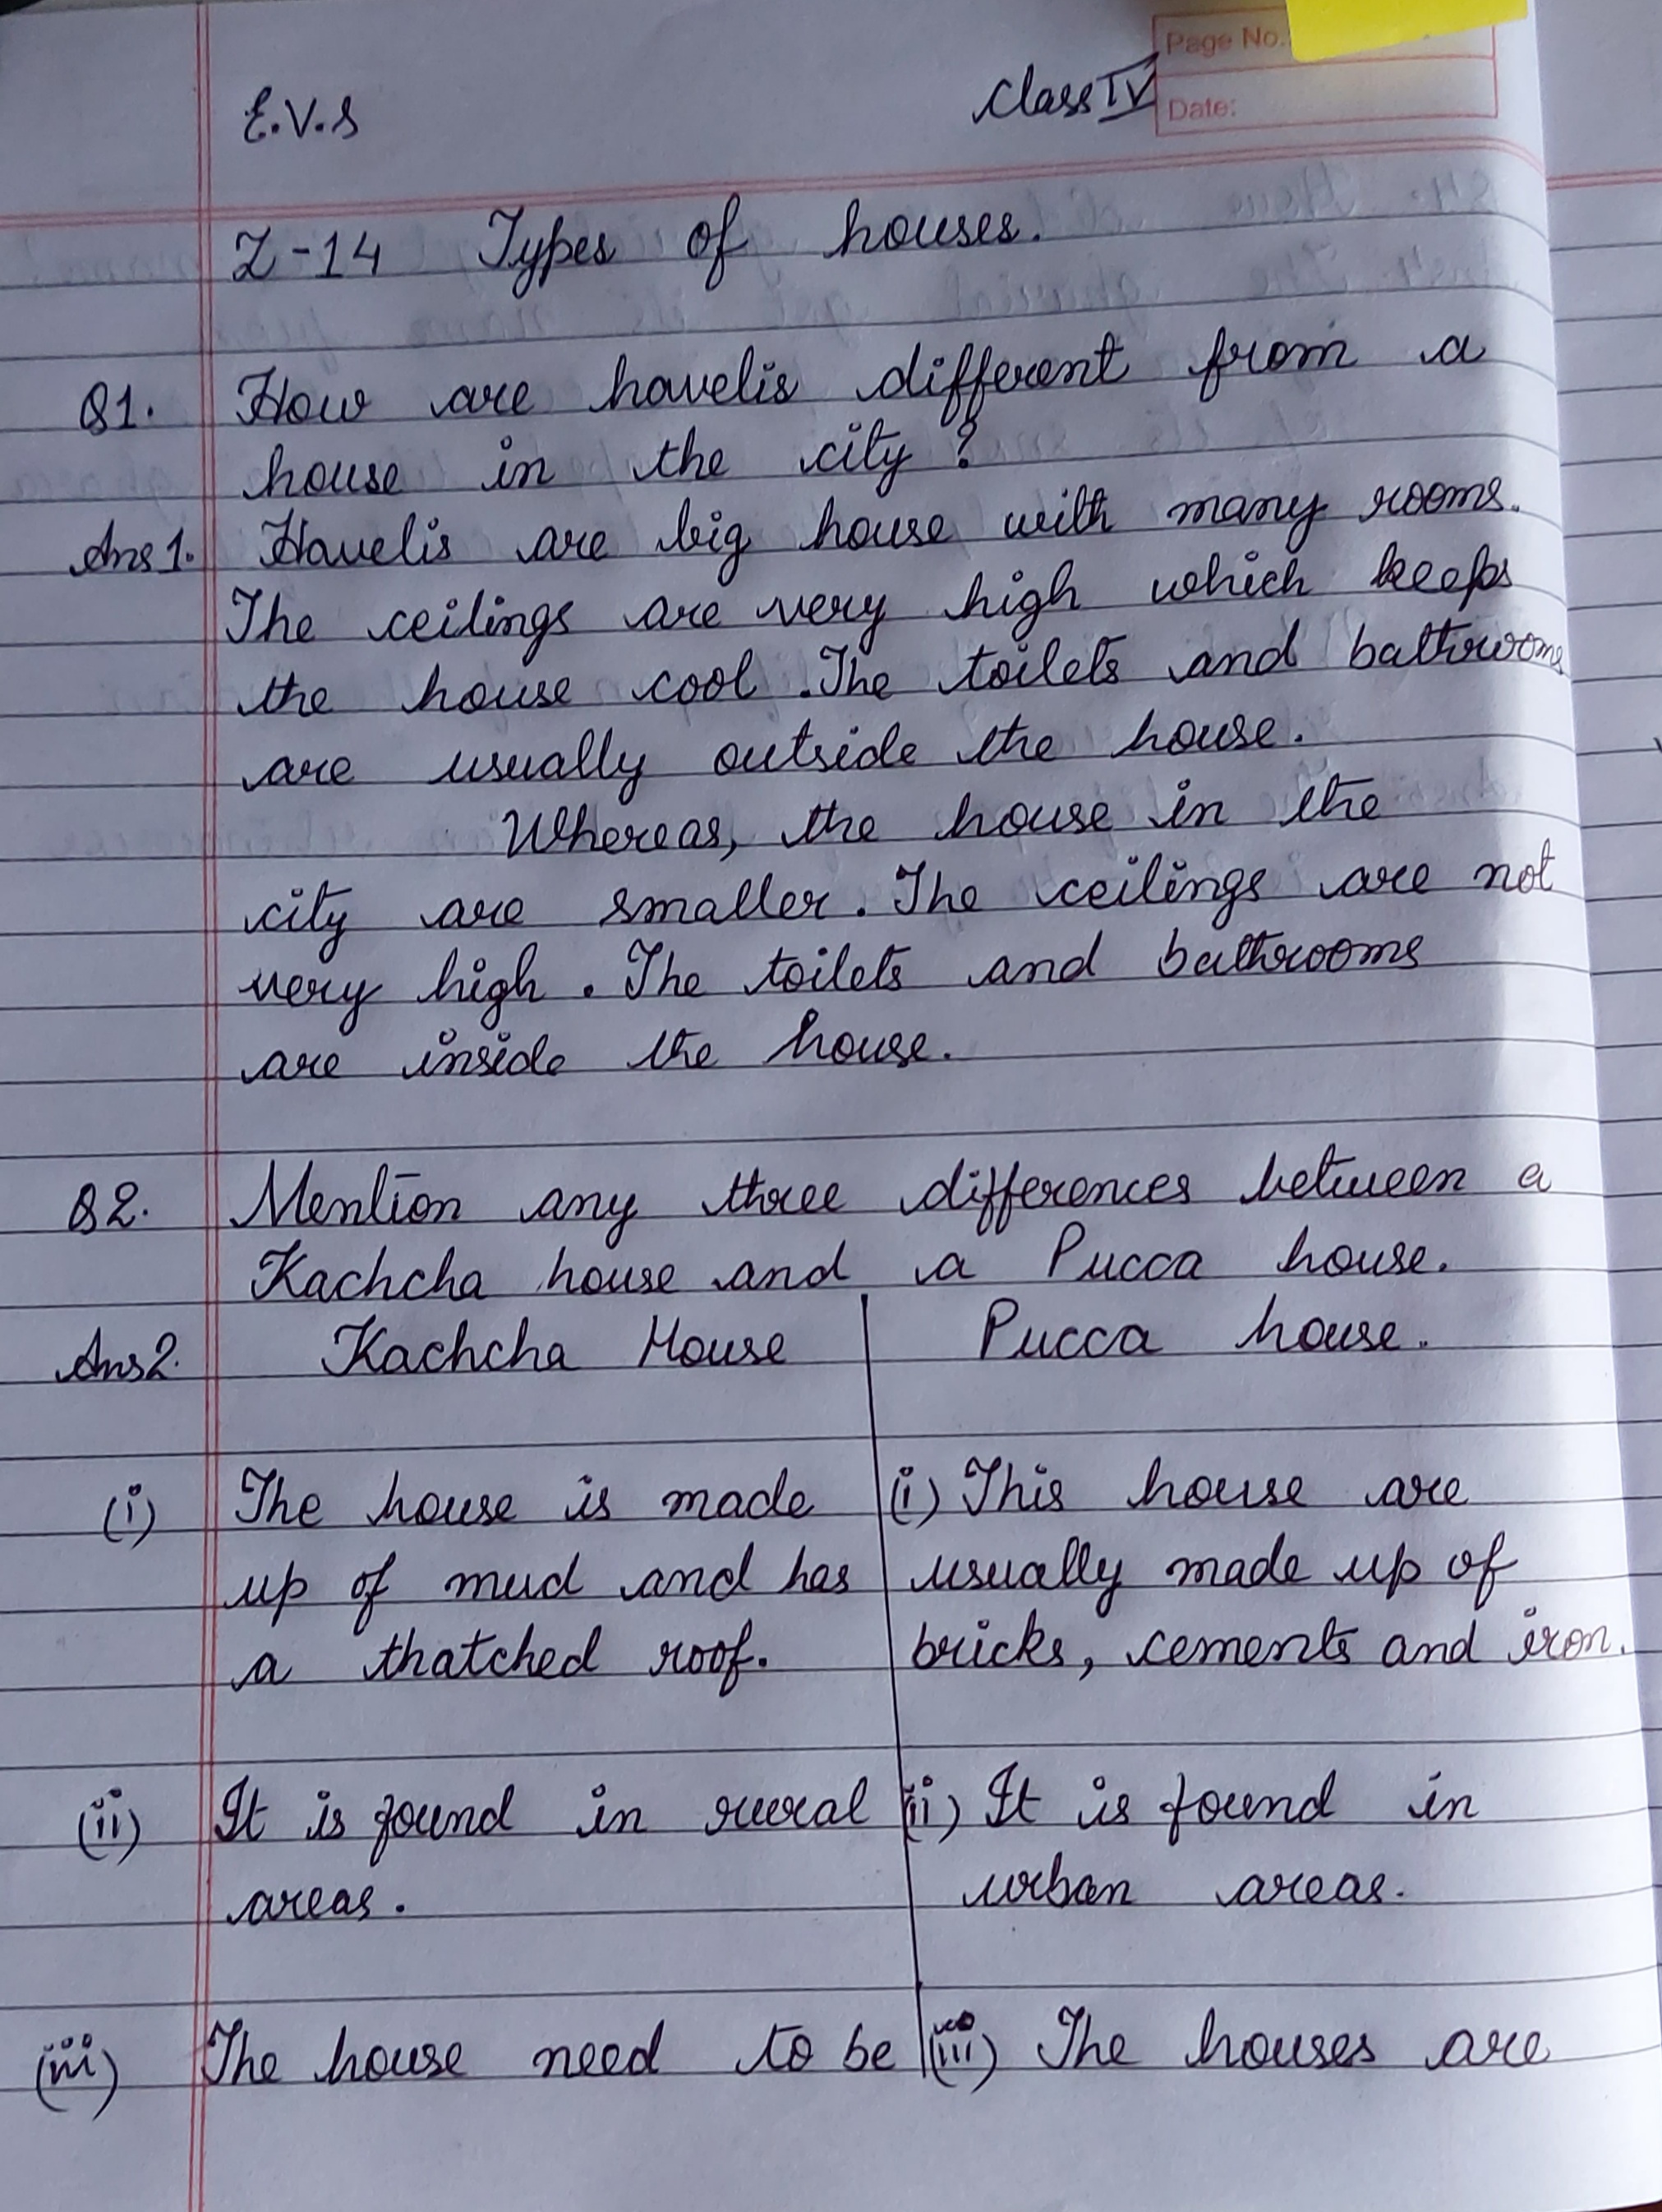 Page No.
Class IV
Date:
E.V.S
L-14 Types of houses.
Q1. How are havelis different from a
house in the city?
Ans1. Havelis are big house with many rooms.
The ceilings are very high which keeps
the house cool. The toilets and bathrooms
are usually outside the house.
Whereas, the house in the
city are smaller. The ceilings are not
very high. The toilets and bathrooms
are inside the house.
Q2. Mention any three differences between a
Kachcha house and a Pucca house.
Ans2. Kachcha House | Pucca house.
(i) The house is made | (i) This house are
up of mud and has | usually made up of
a thatched roof. | bricks, cements and iron.
(ii) It is found in rural | (ii) It is found in
areas. | urban areas.
(iii) The house need to be | (iii) The houses are